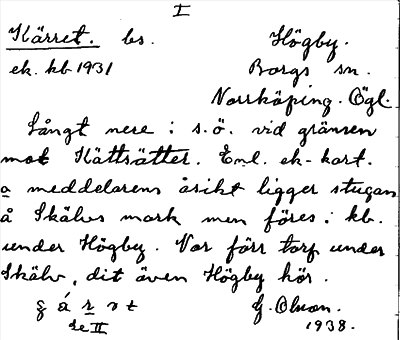 I
Kärret. bs. Högby.
ek. kb 1931 Borgs sn.
Norrköping. Ögl.
Långt nere i s.ö. vid gränsen
mot Kättsätter. Enl. ek-kart.
a meddelarens åsikt ligger stugan
å Skälvs mark men föres i kb.
under Högby. Var förr torp under
Skälv, dit även Högby hör.
G. Olson.
se II 1938.